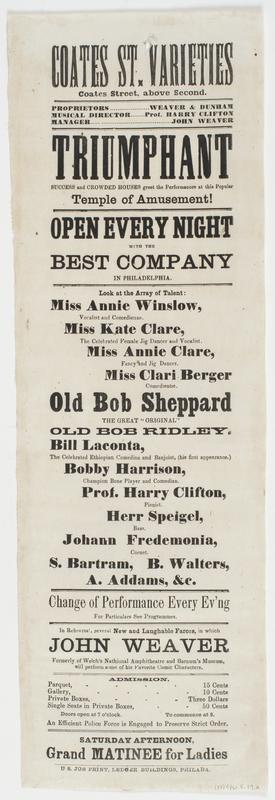 COATES ST. VARIETIES
Coates Street, above Second.
PROPRIETORS..........WEAVER & DUNHAM
MUSICAL DIRECTOR......Prof. HARRY CLIFTON
MANAGER..........JOHN WEAVER
TRIUMPHANT
SUCCESS and CROWDED HOUSES greet the Performances at this Popular
Temple of Amusement!
OPEN EVERY NIGHT
WITH THE
BEST COMPANY
IN PHILADELPHIA.
Look at the Array of Talent:
Miss Annie Winslow,
Vocalist and Comedienne.
Miss Kate Clare,
The Celebrated Female Jig Dancer and Vocalist.
Miss Annie Clare,
Fancy and Jig Dancer.
Miss Clari Berger
Comedienne.
Old Bob Sheppard
THE GREAT "ORIGINAL"
OLD BOB RIDLEY.
Bill Laconta,
The Celebrated Ethiopian Comedian and Banjoist, (his first appearance.)
Bobby Harrison,
Champion Bone Player and Comedian.
Prof. Harry Clifton,
Pianist.
Herr Speigel,
Bass.
Johann Fredemonia,
Cornet.
S. Bartram, B. Walters,
A. Addams, &c.
Change of Performance Every Ev'ng
For Particulars See Programmes.
In Rehearsal, several New and Laughable Farces, in which
JOHN WEAVER
Formerly of Welch's National Amphitheatre and Barnum's Museum,
will perform some of his Favorite Comic Characters.
ADMISSION.
Parquet, - - - - 15 Cents
Gallery, - - - - 10 Cents
Private Boxes, - - - Three Dollars
Single Seats in Private Boxes, - - 50 Cents
Doors open at 7 o'clock. To commence at 8.
An Efficient Police Force is Engaged to Preserve Strict Order.
SATURDAY AFTERNOON,
Grand MATINEE for Ladies
U. S. JOB PRINT, LEDGER BUILDINGS, PHILADA.